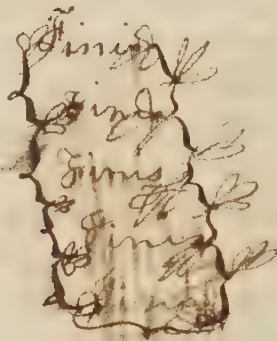 Finis
Finis
Finis
Finis
Finis